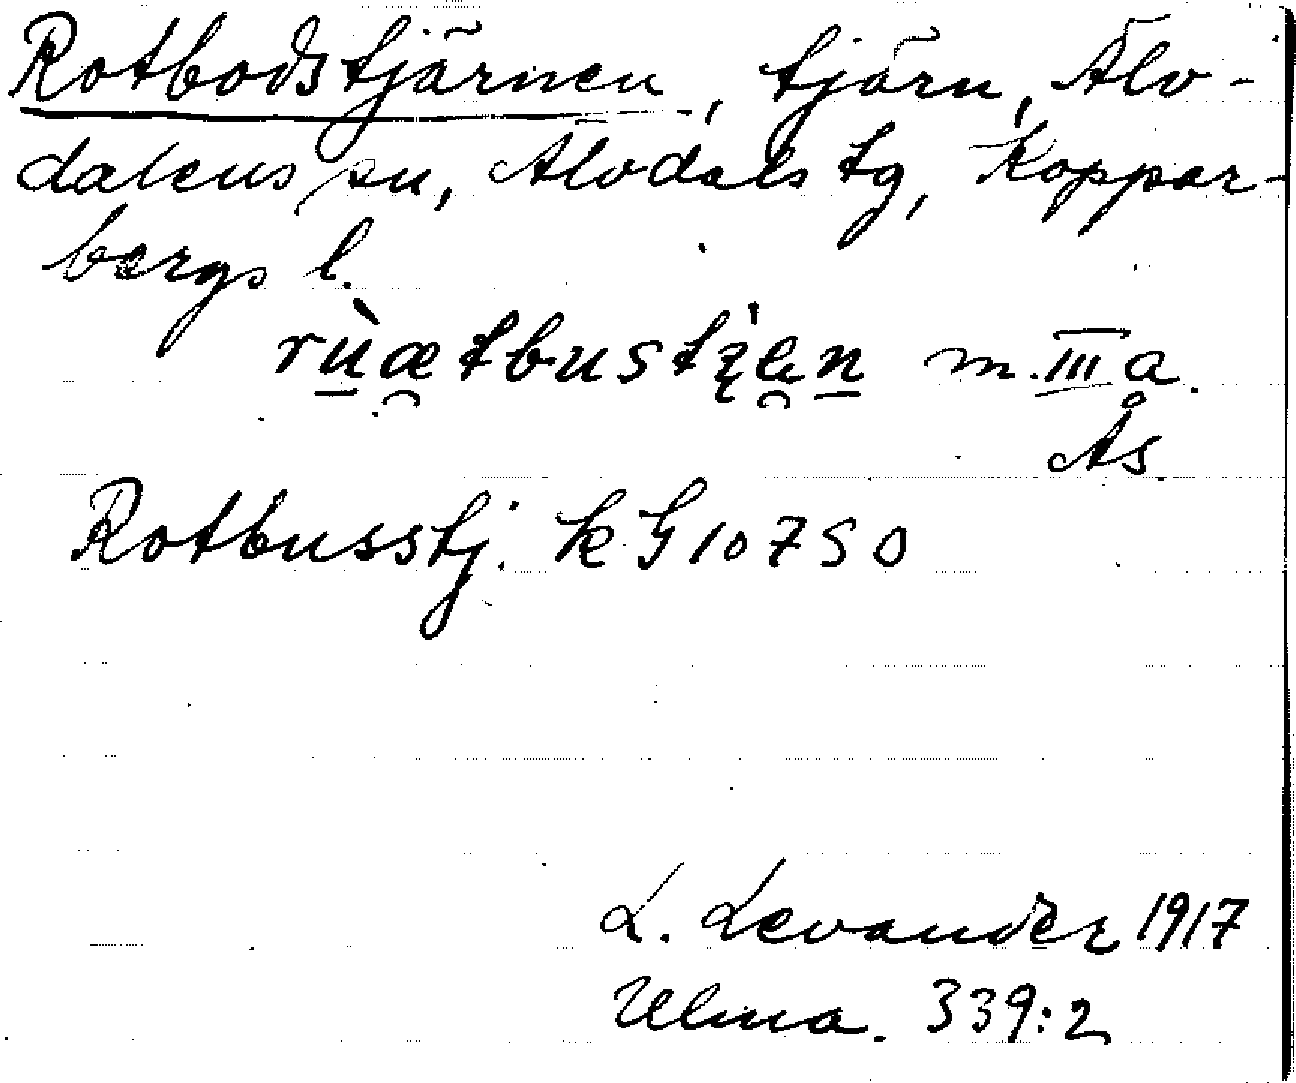 Rotbodstjärnen, tjärn, Älv-
dalens sn, Älvdals tg, Koppar-
bergs l.
rùætbustʒ̨en m. III a.
Ås
Rotbusstj. k G 10750
L. Levander 1917
Ulma. 339:2